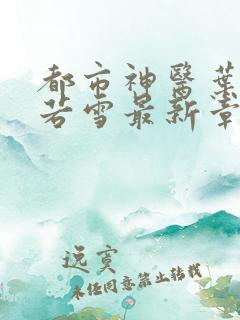 都市神醫葉
若雪最新章
逸寞
未经同意禁止转载